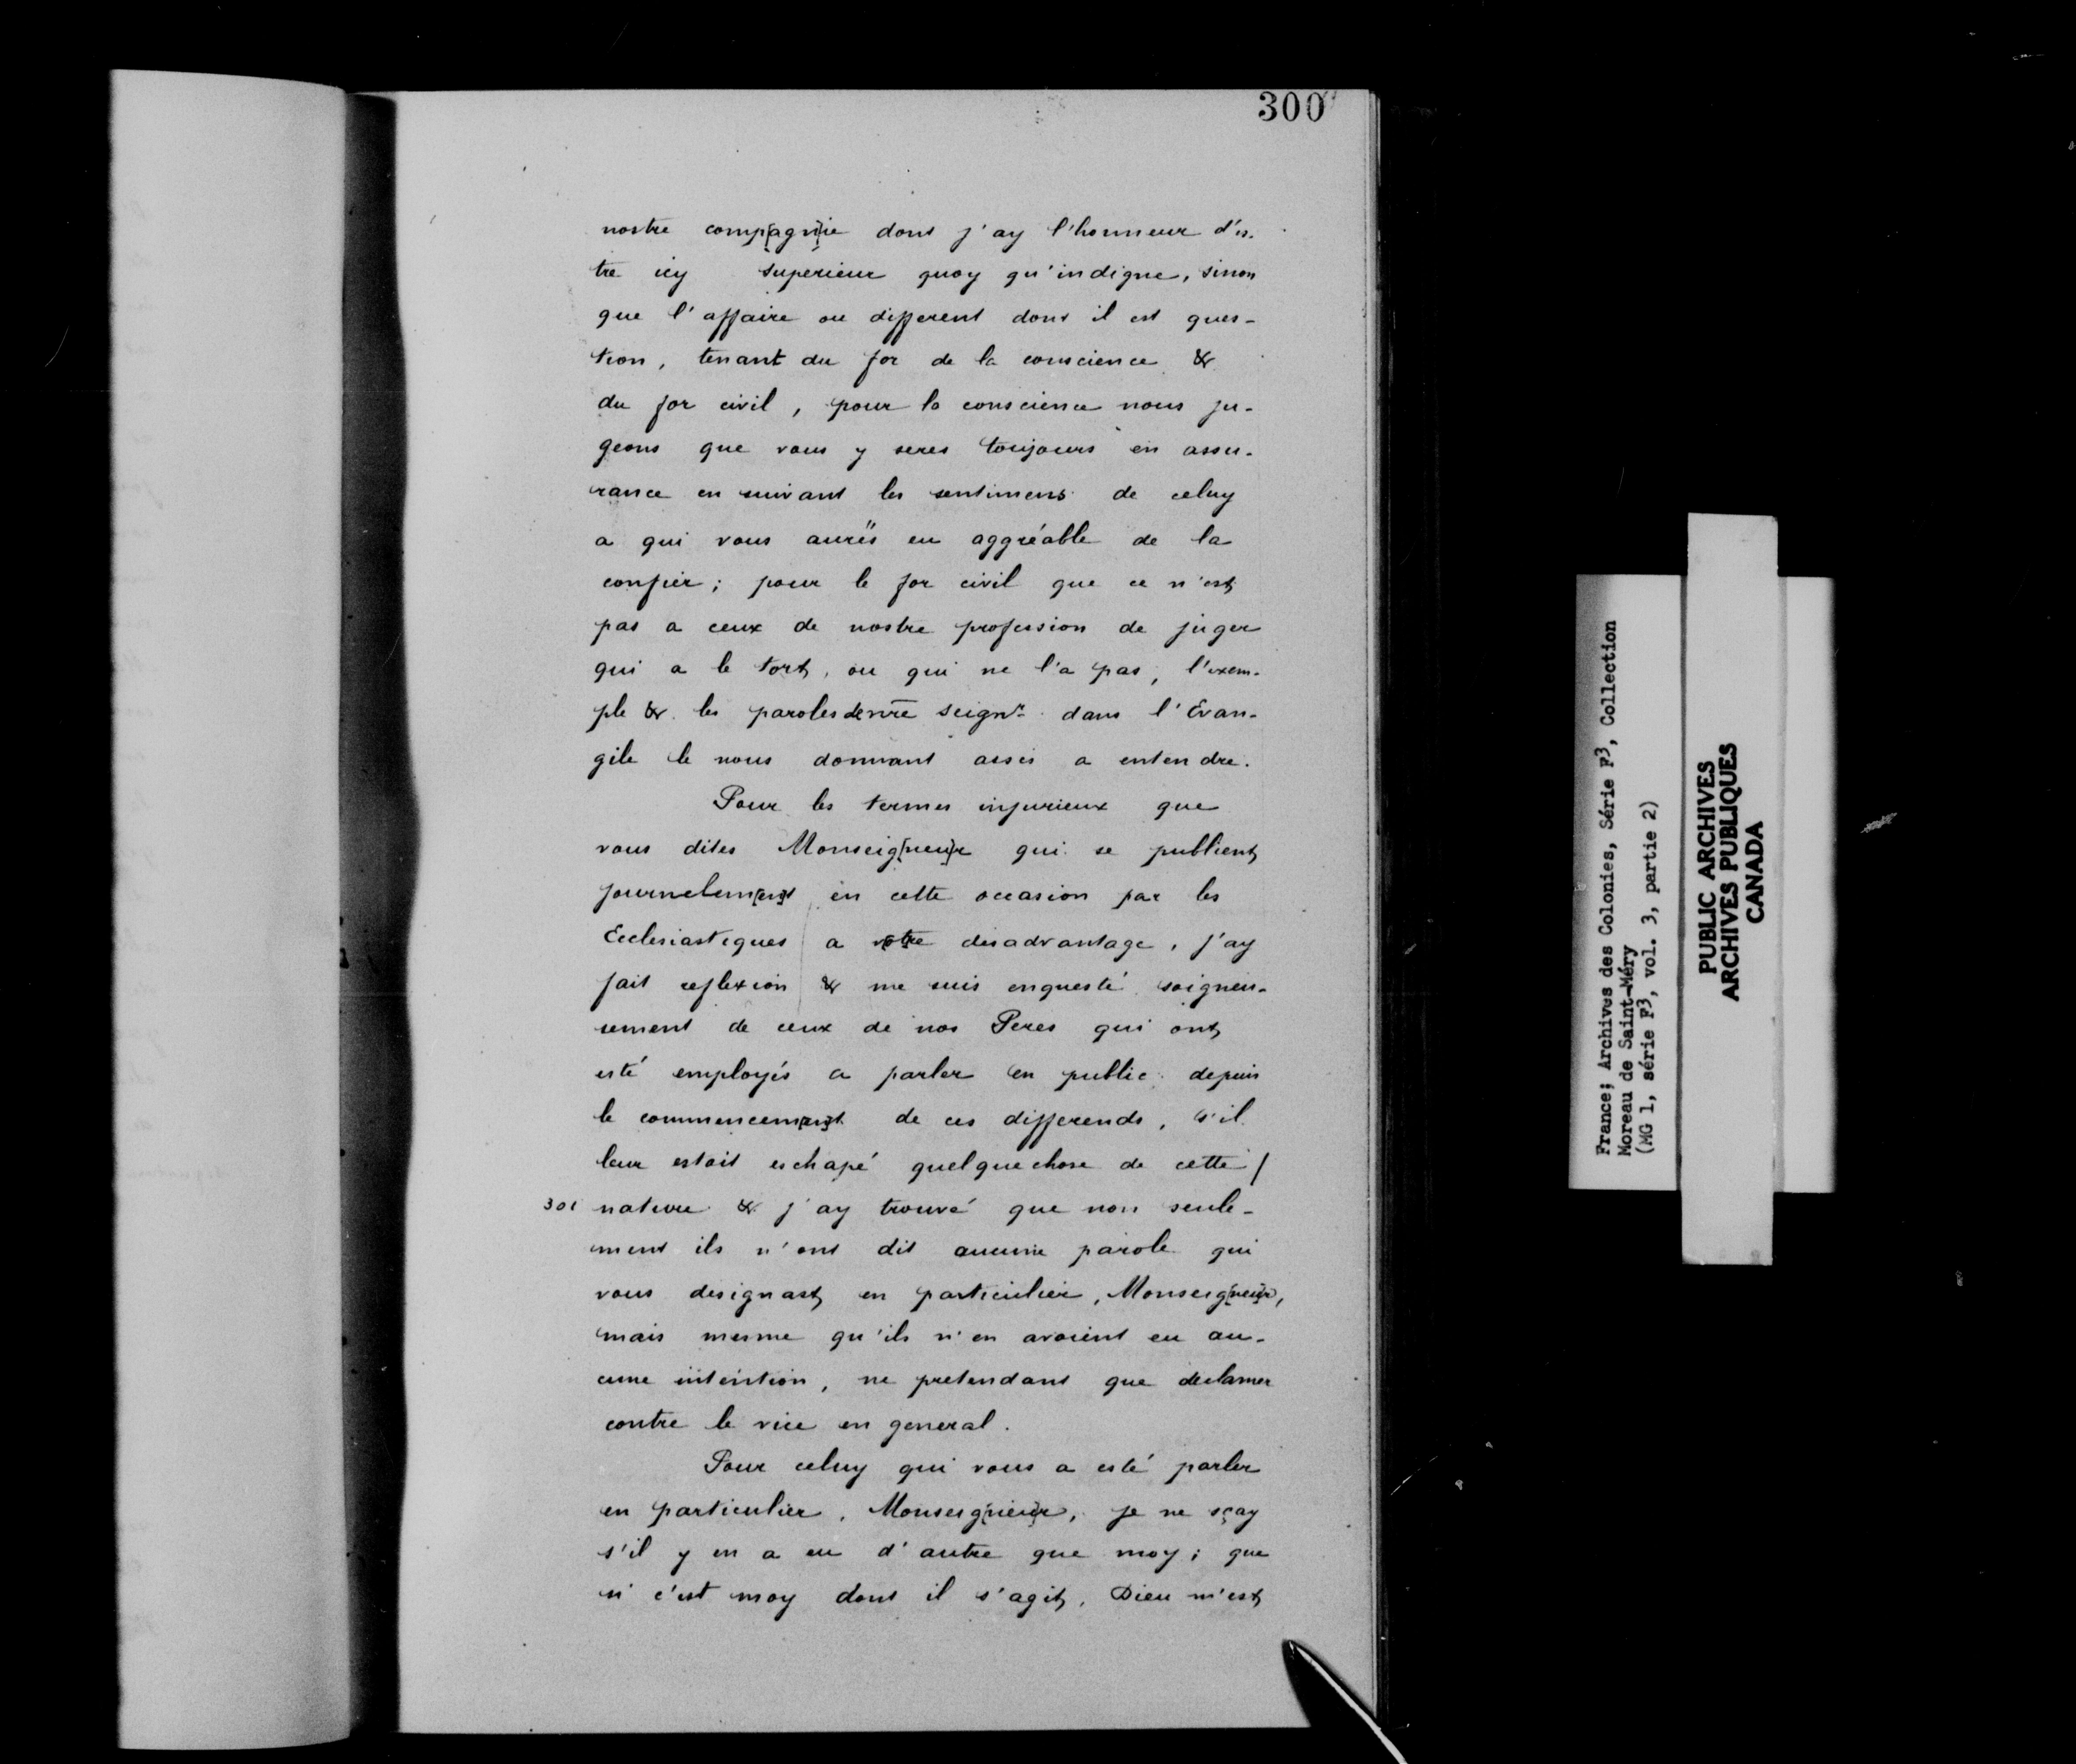 300
nostre comp[agn]ie dont j'ay l'honneur d'es-
tre icy superieur quoy qu'indigne, sinon
que l'affaire ou different dont il est ques-
tion, tenant du for de la conscience &
du for civil, pour la conscience nous ju-
geons que vous y seres toujours en assu-
rance en suivant les sentimens de celuy
a qui vous aurés eu aggréable de la
confier; pour le for civil que ce n'est
pas a ceux de nostre profession de juger
qui a le tort, ou qui ne l'a pas, l'exem-
ple & les paroles de nre seignr dans l'Evan-
gile le nous donnant assés a entendre.
Pour les termes injurieux que
vous dites Monseig[neu]r qui se publient
journelem[en]t en cette occasion par les
Ecclesiastiques a v[ot]re desadvantage, j'ay
fait reflexion & me suis enquesté soigneu-
sement de ceux de nos Peres qui ont
esté employés a parler en public depuis
le commencem[en]t de ces differends, s'il
leur estoit eschapé quelque chose de cette /
301 nature & j'ay trouvé que non seule-
ment ils n'ont dit aucune parole qui
vous designast en particulier, Monseig[neu]r,
mais mesme qu'ils n'en avoient eu au-
cune intention, ne pretendant que declamer
contre le vice en general.
Pour celuy qui vous a esté parler
en particulier, Monseig[neu]r, je ne sçay
s'il y en a eu d'autre que moy; que
si c'est moy dont il s'agit, Dieu m'est
France; Archives des Colonies, Série F3, Collection
Moreau de Saint-Méry
(MG 1, série F3, vol. 3, partie 2)
PUBLIC ARCHIVES
ARCHIVES PUBLIQUES
CANADA